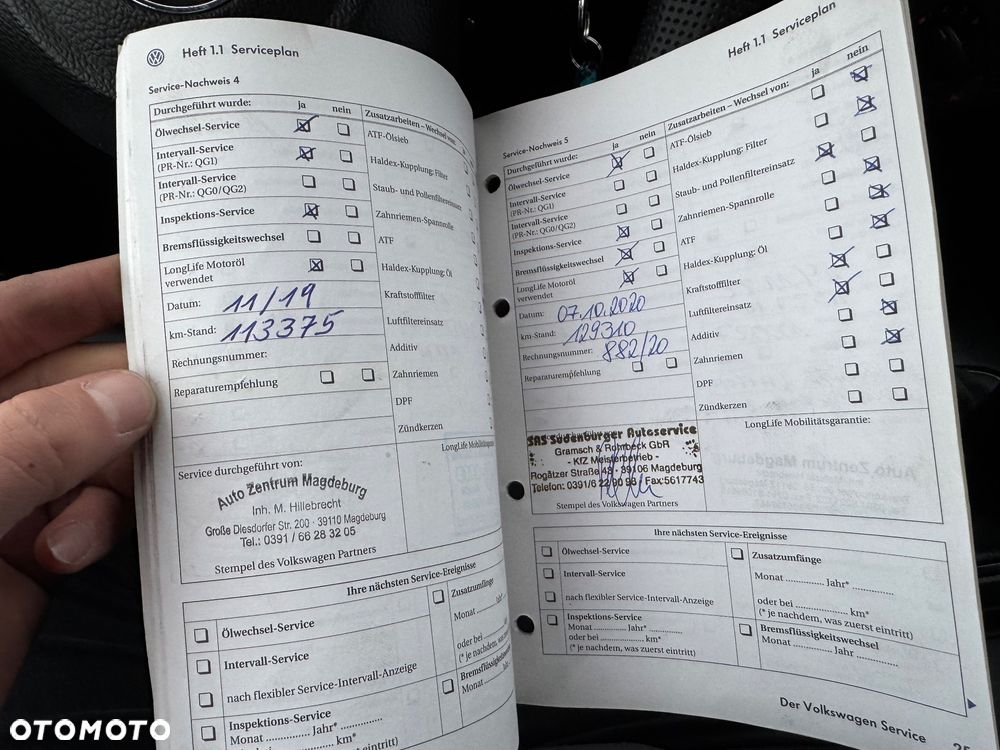 Heft 1.1 Serviceplan
Service-Nachweis 4
Durchgeführt wurde: ja nein
Ölwechsel-Service
Intervall-Service
(PR-Nr.: QG1)
Intervall-Service
(PR-Nr.: QG0/QG2)
Inspektions-Service
Bremsflüssigkeitswechsel
LongLife Motoröl
verwendet
Datum: 11/19
km-Stand: 113375
Rechnungsnummer:
Reparaturempfehlung
Zusatzarbeiten – Wechsel von:
ATF-Ölsieb
Haldex-Kupplung: Filter
Staub- und Pollenfiltereinsatz
Zahnriemen-Spannrolle
ATF
Haldex-Kupplung: Öl
Kraftstofffilter
Luftfiltereinsatz
Additiv
Zahnriemen
DPF
Zündkerzen
LongLife Mobilitätsgarantie
Service durchgeführt von:
Auto Zentrum Magdeburg
Inh. M. Hillebrecht
Große Diesdorfer Str. 200 · 39110 Magdeburg
Tel.: 0391 / 66 28 32 05
Stempel des Volkswagen Partners
Ihre nächsten Service-Ereignisse
Ölwechsel-Service
Intervall-Service
nach flexibler Service-Intervall-Anzeige
Inspektions-Service
Monat .............. Jahr* ..............
oder bei .............. km*
eintritt)
Zusatzumfänge
Monat ..............
oder bei ..............
(* je nachdem, was
Bremsflüssigkeitswechsel
Monat ..............
Heft 1.1 Serviceplan
Service-Nachweis 5
Durchgeführt wurde: ja nein
Ölwechsel-Service
Intervall-Service
(PR-Nr.: QG1)
Intervall-Service
(PR-Nr.: QG0/QG2)
Inspektions-Service
Bremsflüssigkeitswechsel
LongLife Motoröl
verwendet
Datum: 07.10.2020
km-Stand: 129310
Rechnungsnummer: 882/20
Reparaturempfehlung
Zusatzarbeiten – Wechsel von: ja nein
ATF-Ölsieb
Haldex-Kupplung: Filter
Staub- und Pollenfiltereinsatz
Zahnriemen-Spannrolle
ATF
Haldex-Kupplung: Öl
Kraftstofffilter
Luftfiltereinsatz
Additiv
Zahnriemen
DPF
Zündkerzen
LongLife Mobilitätsgarantie:
SAS Sudenburger Autoservice
Gramsch & Rohrbeck GbR
- KfZ Meisterbetrieb -
Rogätzer Straße 43 · 39106 Magdeburg
Telefon: 0391/6 22 90 98 Fax:5617743
Stempel des Volkswagen Partners
Ihre nächsten Service-Ereignisse
Ölwechsel-Service
Intervall-Service
nach flexibler Service-Intervall-Anzeige
Inspektions-Service
Monat .............. Jahr* ..............
oder bei .............. km*
(* je nachdem, was zuerst eintritt)
Zusatzumfänge
Monat .............. Jahr* ..............
oder bei .............. km*
(* je nachdem, was zuerst eintritt)
Bremsflüssigkeitswechsel
Monat .............. Jahr ..............
Der Volkswagen Service
OTOMOTO